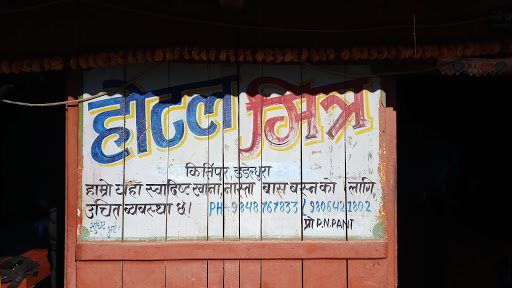 होटल मित्र
किर्तिपुर, डडेल्धुरा
हाम्रो यहाँ स्वादिष्ट खाना, नास्ता बास बस्नको लागि,
उचित ब्यवस्था छ। PH-9848767833/9806421802
प्रो P.N.PANT